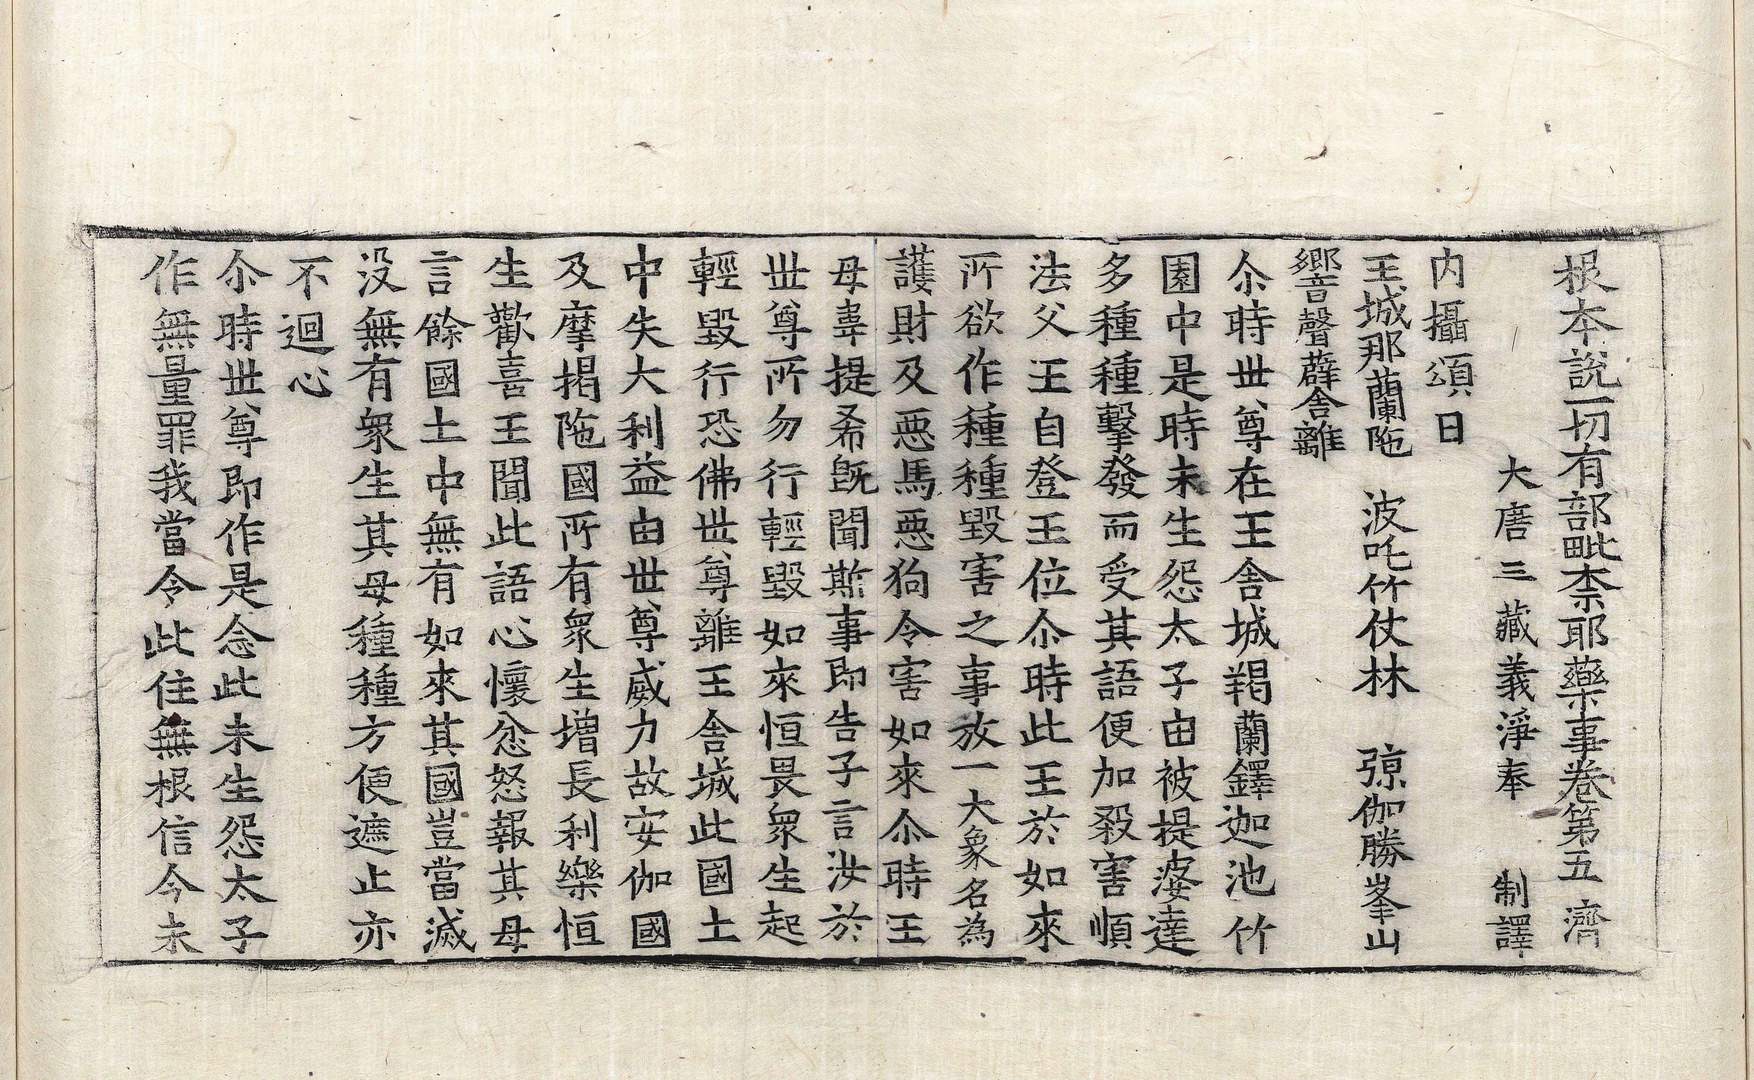 根本說一切有部毗柰耶藥事卷第五 濟
大唐三藏義淨奉 制譯
內攝頌曰
王城那蘭陁 波吒竹仗林 弶伽勝峯山
響聲薜舍離
尒時世尊在王舍城羯蘭鐸迦池竹
園中是時未生怨太子由被提婆達
多種種擊發而受其語便加殺害順
法父王自登王位尒時此王於如來
所欲作種種毀害之事放一大象名為
護財及惡馬惡狗令害如來尒時王
母韋提希旣聞斯事即告子言汝於
世尊所勿行輕毀如來恒畏衆生起
輕毀行恐佛世尊離王舍城此國土
中失大利益由世尊威力故安伽國
及摩揭陁國所有衆生增長利樂恒
生歡喜王聞此語心懷忿怒報其母
言餘國土中無有如來其國豈當滅
没無有衆生其母種種方便遮止亦
不迴心
尒時世尊即作是念此未生怨太子
作無量罪我當令此住無根信今未